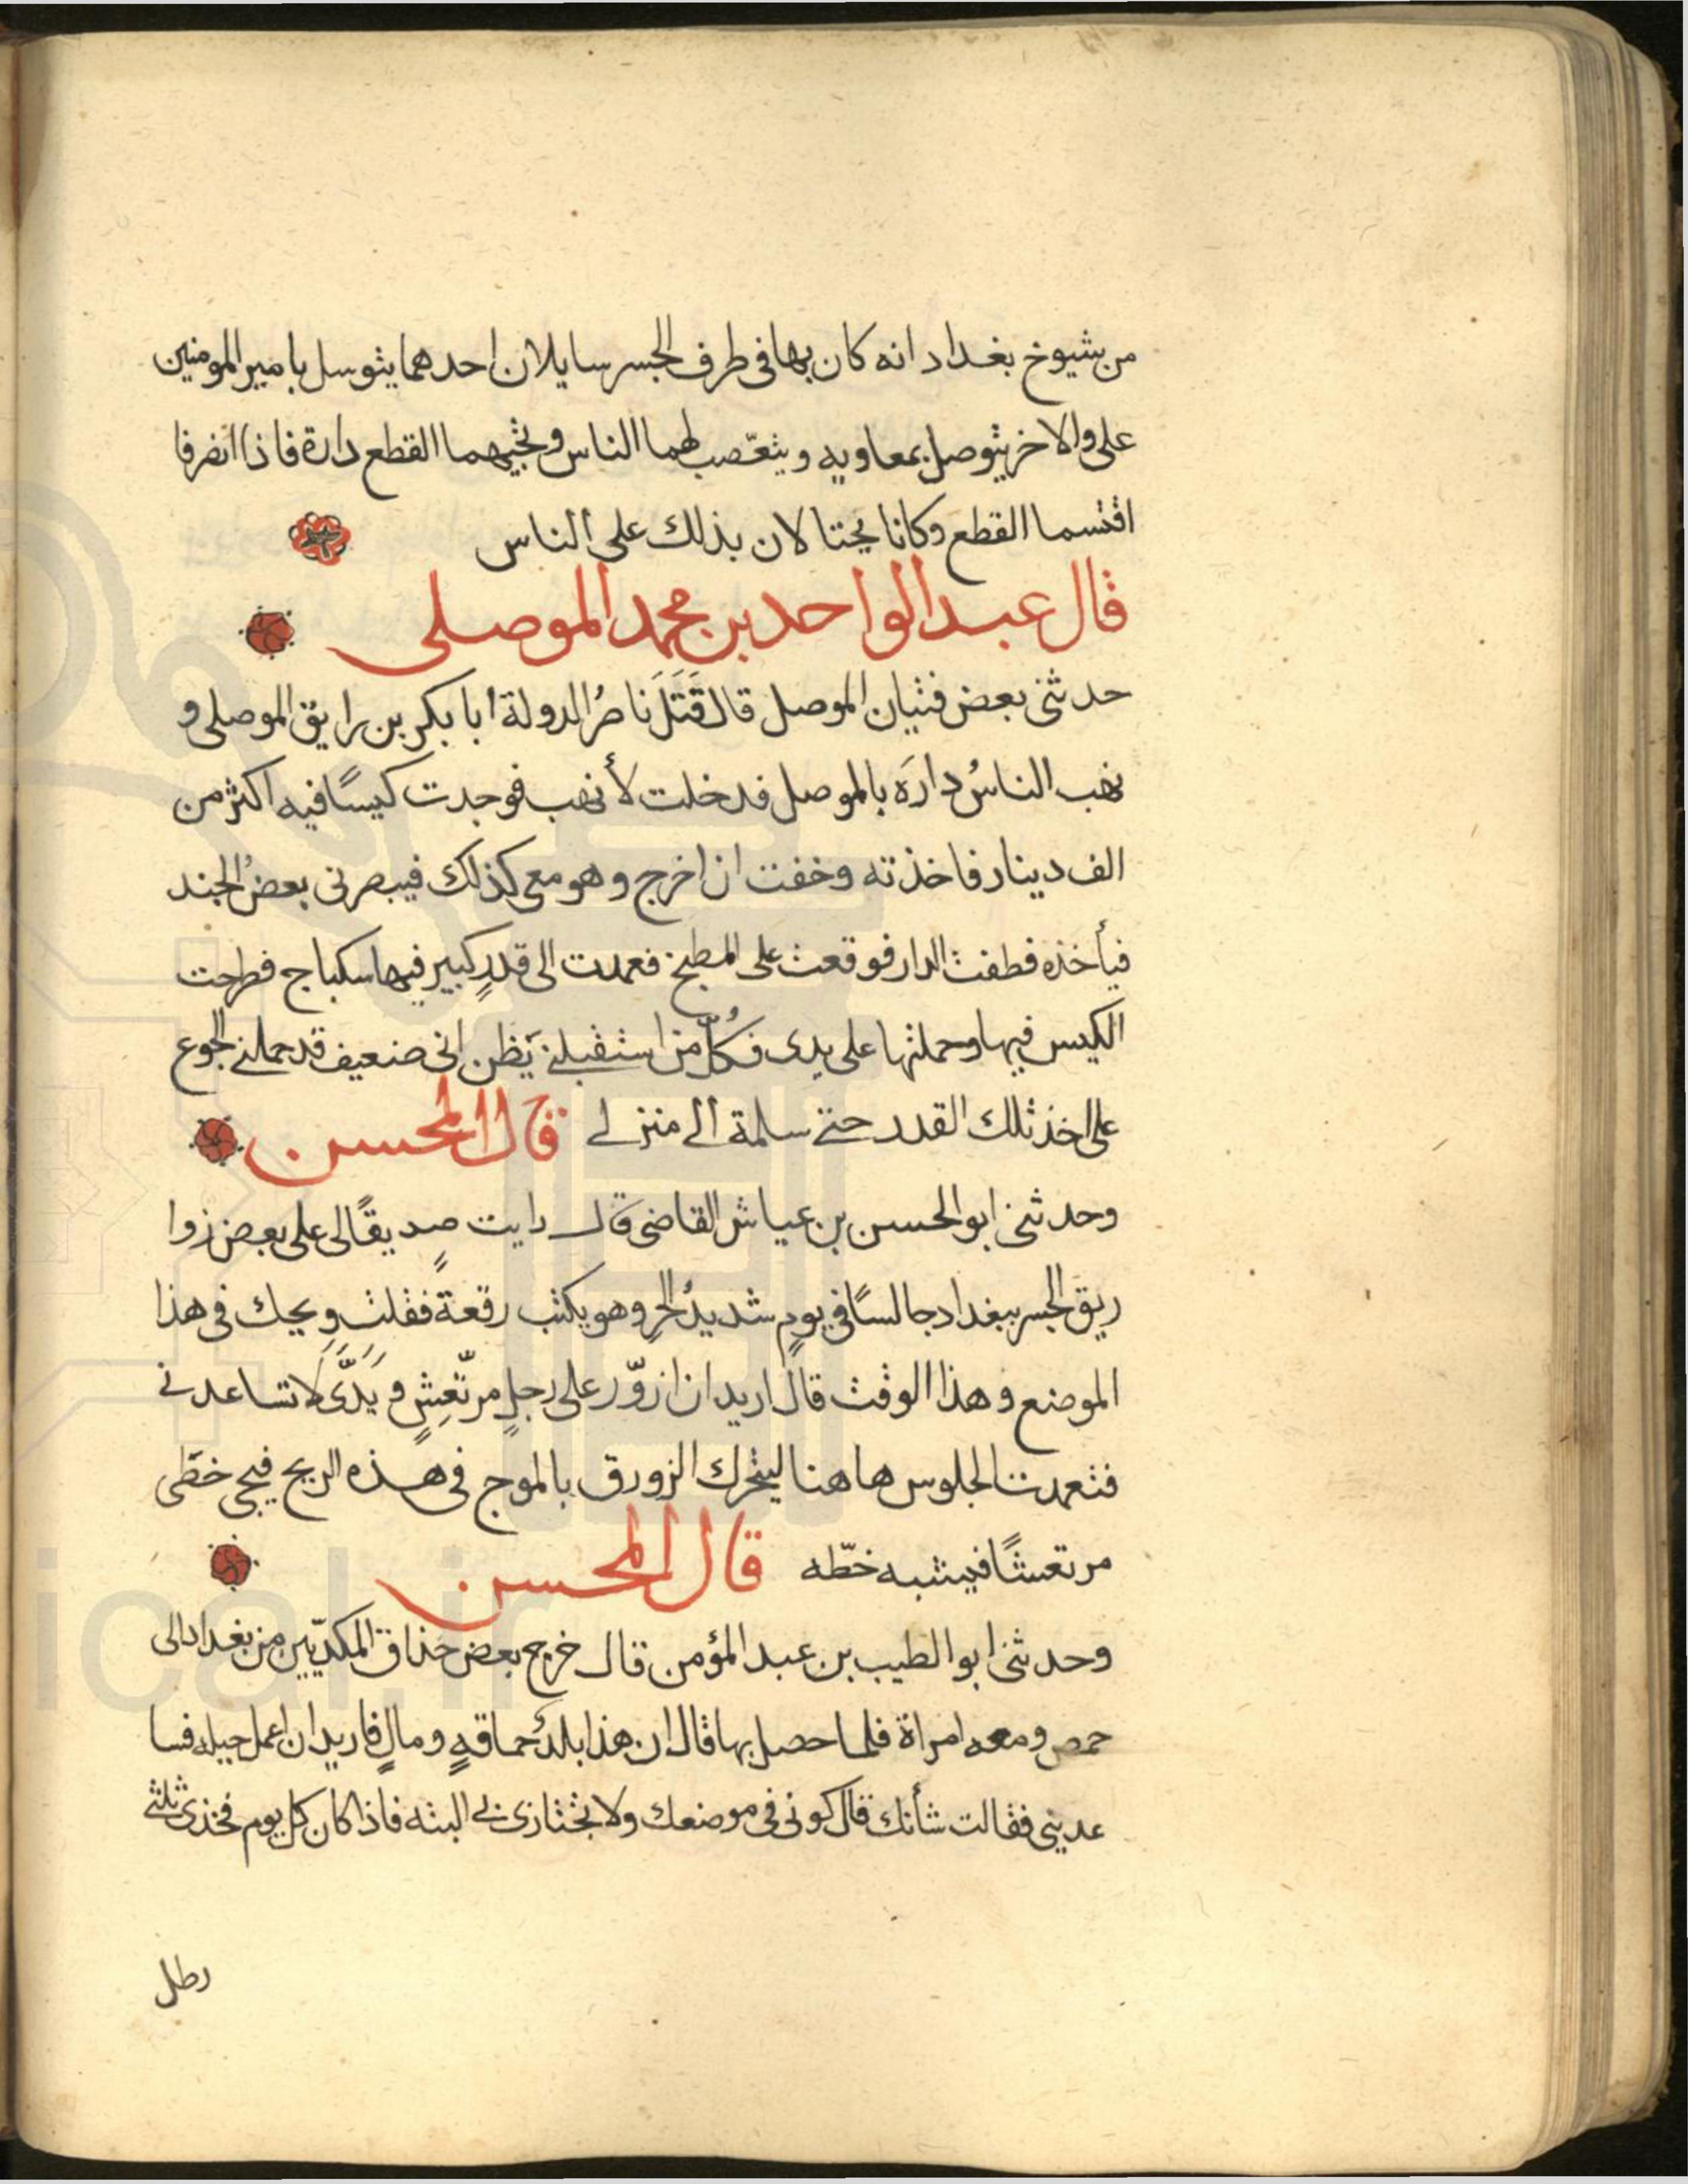 من شيوخ بغداد انه كان بها فى طرف الجسر سايلان احدهما يتوسل بامير المومنين
على والاخر يتوصل بمعاويه ويتعّصب لهما الناس وتجيهما القطع دارة فاذا انصرفا
اقتسما القطع وكانا يحتالان بذلك على الناس
قال عبد الواحد بن محمد الموصلى
حدثنى بعض فتيان الموصل قال قَتَلَ ناصُر الدولة أبا بكر بن رايق الموصلى و
نهب الناسُ دارَه بالموصل فدخلت لأنهب فوجدت كيسًا فيه اكثر من
الف دينار فاخذته وخفت ان اخرج وهو معى كذلك فيبصرنى بعضُ الجند
فيأخذه فطفت الدار فوقعت على المطبخ فعمدت الى قدرٍ كبير فيها سكباج فطرحت
الكيس فيها وحملتها على يدى فكُلّ من استقبلنى يَظن انى ضعيف قد حملنى الجوع
على اخذ تلك القدر حتى سلمة الى منزلى قال المحسن
وحدثنى ابو الحسن بن عياش القاضى قال رايت صديقًا لى على بعض زوا
ريق الجسر ببغداد جالسًا فى يومٍ شديدُ الحرِ وهو يكتب رقعة فقلت ويحك فى هذا
الموضع وهذا الوقت قال اريد ان ازوّر على رجلٍ مرتّعِشٍ ويَدَّى لا تساعدنى
فتعمدت الجلوس هاهنا ليتحرك الزورق بالموج فى هذه الريح فيجى خطّى
مرتعشًا فيشبه خطّه قال المحسن
وحدثنى ابو الطيب بن عبد المؤمن قال خرج بعض حذاق المكديّين من بغداد الى
حمص ومعه امراة فلما حصل بها قال ان هذا بلدُ حماقهٍ ومالٍ فاريد ان اعمل حيله فسا
عدينى فقالت شأنك قال كونى فى موضعك ولا تجتازى بى البته فاذا كان كل يوم فخذى ثلثى
رطل